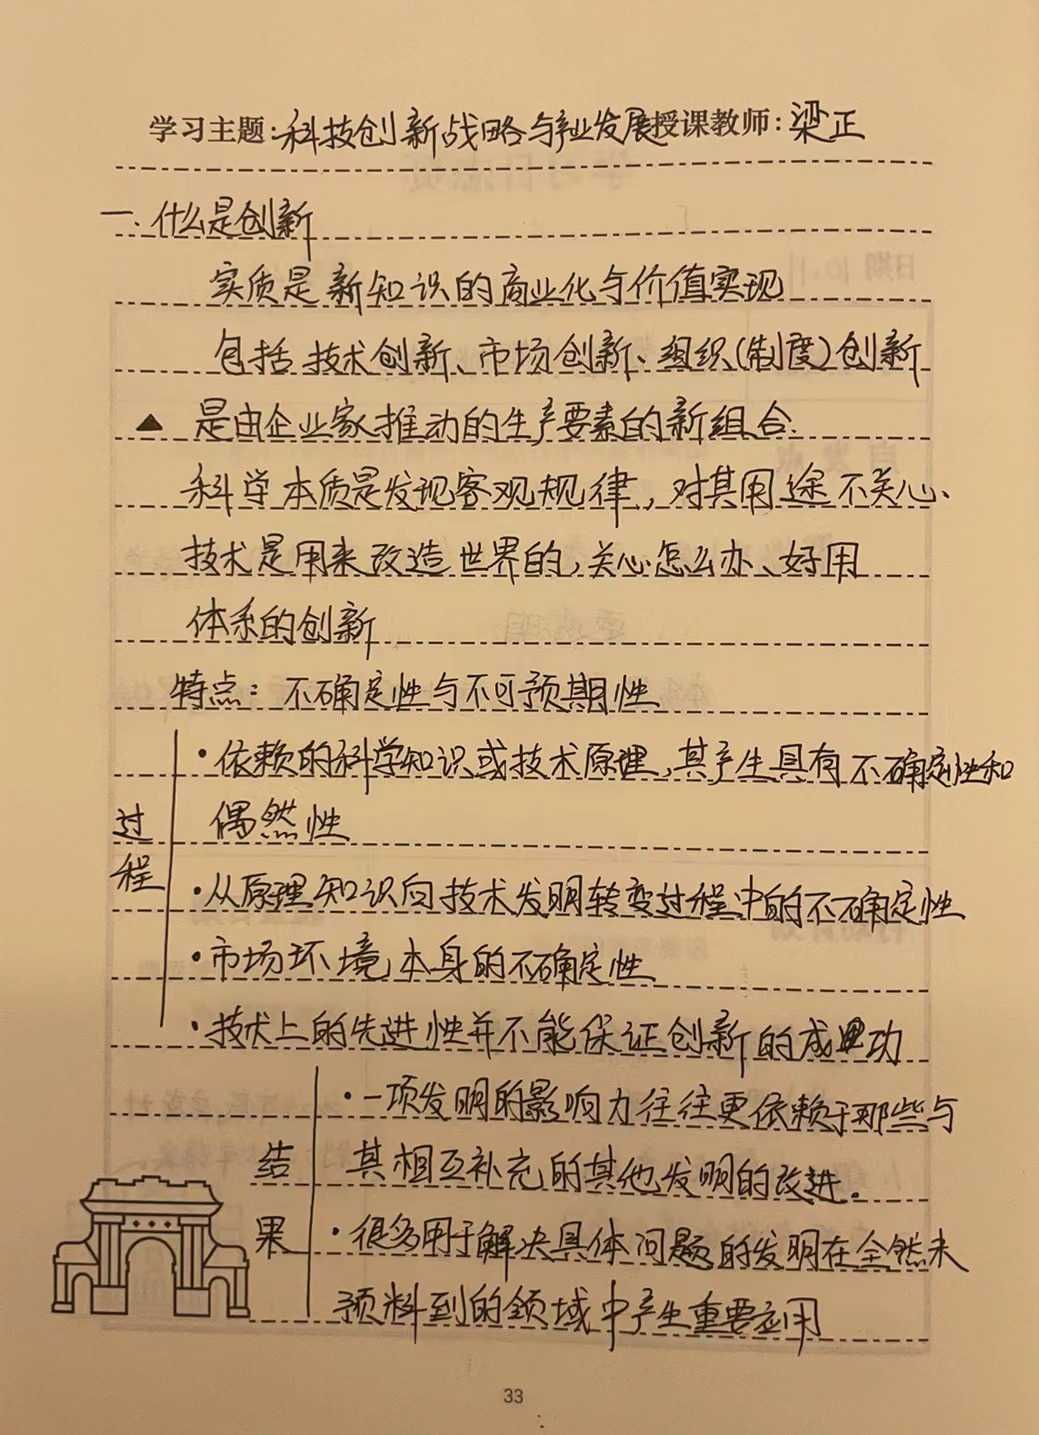 学习主题:科技创新战略与产业发展授课教师:梁正
一.什么是创新
实质是新知识的商业化与价值实现
包括技术创新、市场创新、组织(制度)创新
▲ 是由企业家推动的生产要素的新组合.
科学本质是发现客观规律,对其用途不关心、
技术是用来改造世界的,关心怎么办、好用
体系的创新
特点:不确定性与不可预期性
过程
·依赖的科学知识或技术原理,其产生具有不确定性和
偶然性
·从原理知识向技术发明转变过程中的不确定性
·市场环境本身的不确定性
·技术上的先进性并不能保证创新的成功
结果
·一项发明的影响力往往更依赖于那些与
其相互补充的其他发明的改进.
·很多用于解决具体问题的发明在全然未
预料到的领域中产生重要应用
33